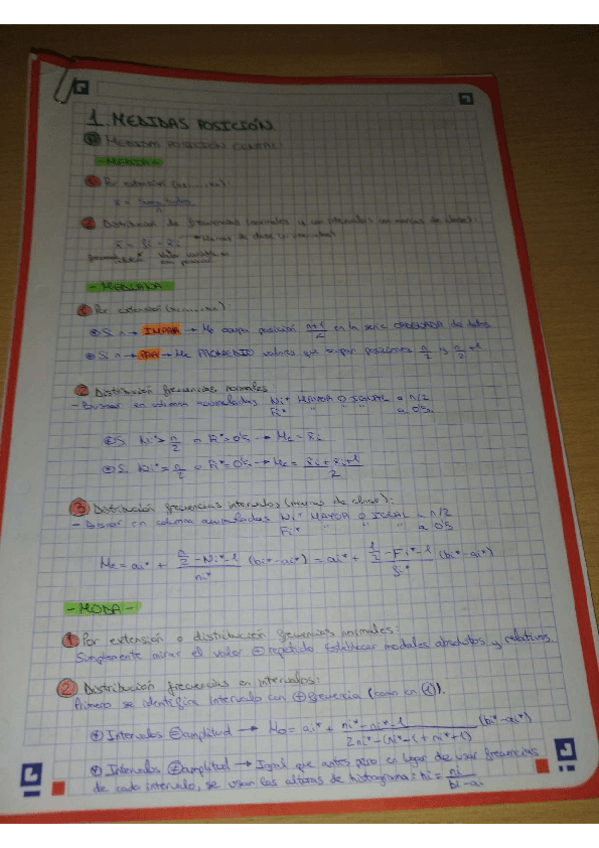 1. MEDIDAS POSICIÓN
MEDIDAS POSICIÓN CENTRAL
- MEDIA -
1 Por extensión (x1,...,xn):
x̄ = / n
2 Distribución de frecuencias (normales y en intervalos con marcas de clase):
- MEDIANA -
1 Por extensión (x1,...,xn)
Si n → IMPAR → Me ocupa posición n+1/2 en la serie ORDENADA de datos
Si n → PAR → Me PROMEDIO valores que ocupan posiciones n/2 y n/2+1
2 Distribución frecuencias normales
- Buscar en columna acumuladas Ni* MAYOR O IGUAL a n/2
Fi* " " " a 0'5
Si Ni*> n/2 o Fi*>0'5 → Me = xi
Si Ni*= n/2 o Fi*=0'5 → Me = xi+xi+1/2
3 Distribución frecuencias intervalos (marcas de clase):
- Buscar en columna acumuladas Ni* MAYOR O IGUAL a n/2
Fi* " " " a 0'5
Me = ai* + n/2 - Ni*-1 / ni* (bi*-ai*) = ai* + 1/2 - Fi*-1 / fi* (bi*-ai*)
- MODA -
1 Por extensión o distribución frecuencias normales:
Simplemente mirar el valor ⊕ repetido. Establecer modales absolutos y relativos.
2 Distribución frecuencias en intervalos:
Primero se identifica intervalo con ⊕ frecuencia (como en 1).
Intervalos = amplitud → Mo = ai* + ni*-ni*-1 / 2ni*-(ni*-1+ni*+1) (bi*-ai*)
Intervalos ≠ amplitud → Igual que antes pero en lugar de usar frecuencias
de cada intervalo, se usan las alturas de histograma: hi = ni / bi-ai